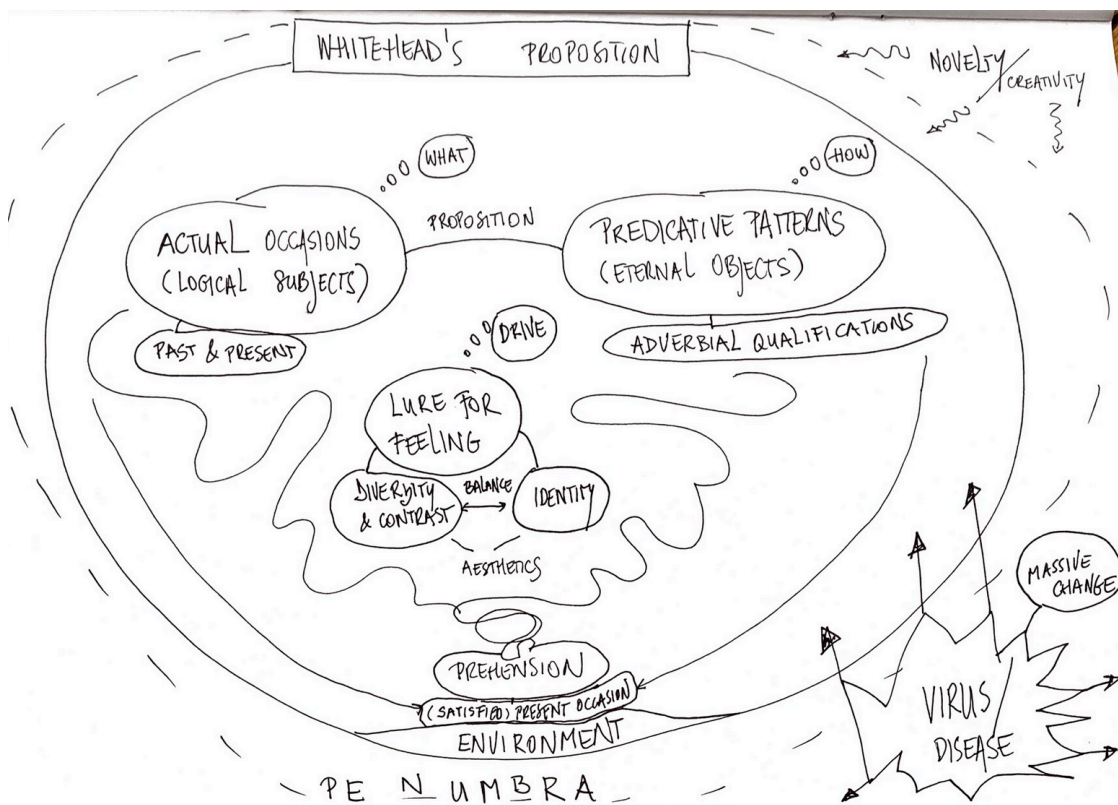 WHITEHEAD'S PROPOSITION
NOVELTY/
CREATIVITY
WHAT
HOW
ACTUAL OCCASIONS
(LOGICAL SUBJECTS)
PROPOSITION
PREDICATIVE PATTERNS
(ETERNAL OBJECTS)
PAST & PRESENT
ADVERBIAL QUALIFICATIONS
DRIVE
LURE FOR
FEELING
DIVERSITY
& CONTRAST
BALANCE
IDENTITY
AESTHETICS
PREHENSION
(SATISFIED) PRESENT OCCASION
ENVIRONMENT
PENUMBRA
MASSIVE
CHANGE
VIRUS
DISEASE